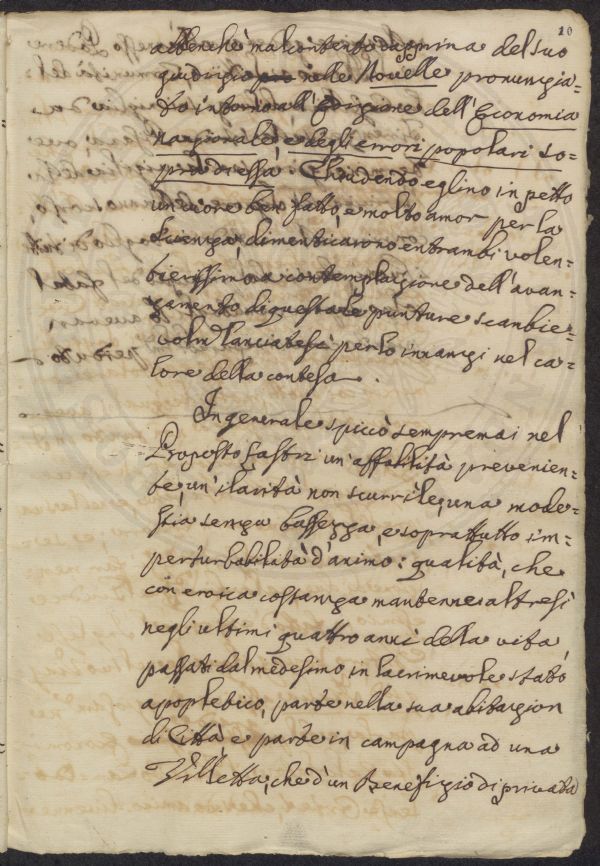 10
abbenchè malcontento dapprima del suo
giudizio nelle Novelle pronunzia=
to intorno all'Edizione dell'Economia
Nazionale, e degli errori popolari so=
pra d'essa. Chiudendo eglino in petto
un cuore ben fatto, e molto amor per la
scienza, dimenticarono entrambi volen=
tierissimo a contemplazione dell'avan=
zamento di questa le punture scambie=
volm.e lanciatesi per lo innanzi nel ca=
lore della contesa.
In generale spiccò sempremai nel
Proposto Fabbri un'affabilità prevenien=
te, un'ilarità non scurrile, una mode=
stia senza bassezza, e soprattutto im=
perturbabilità d'animo: qualità, che
con eroica costanza mantenne altresì
negli ultimi quattro anni della vita
passati dal medesimo in lacrimevole stato
apopletico, parte nella sua abitazion
di Città, e parte in campagna ad una
Villetta, che d'un Benefizio di privata